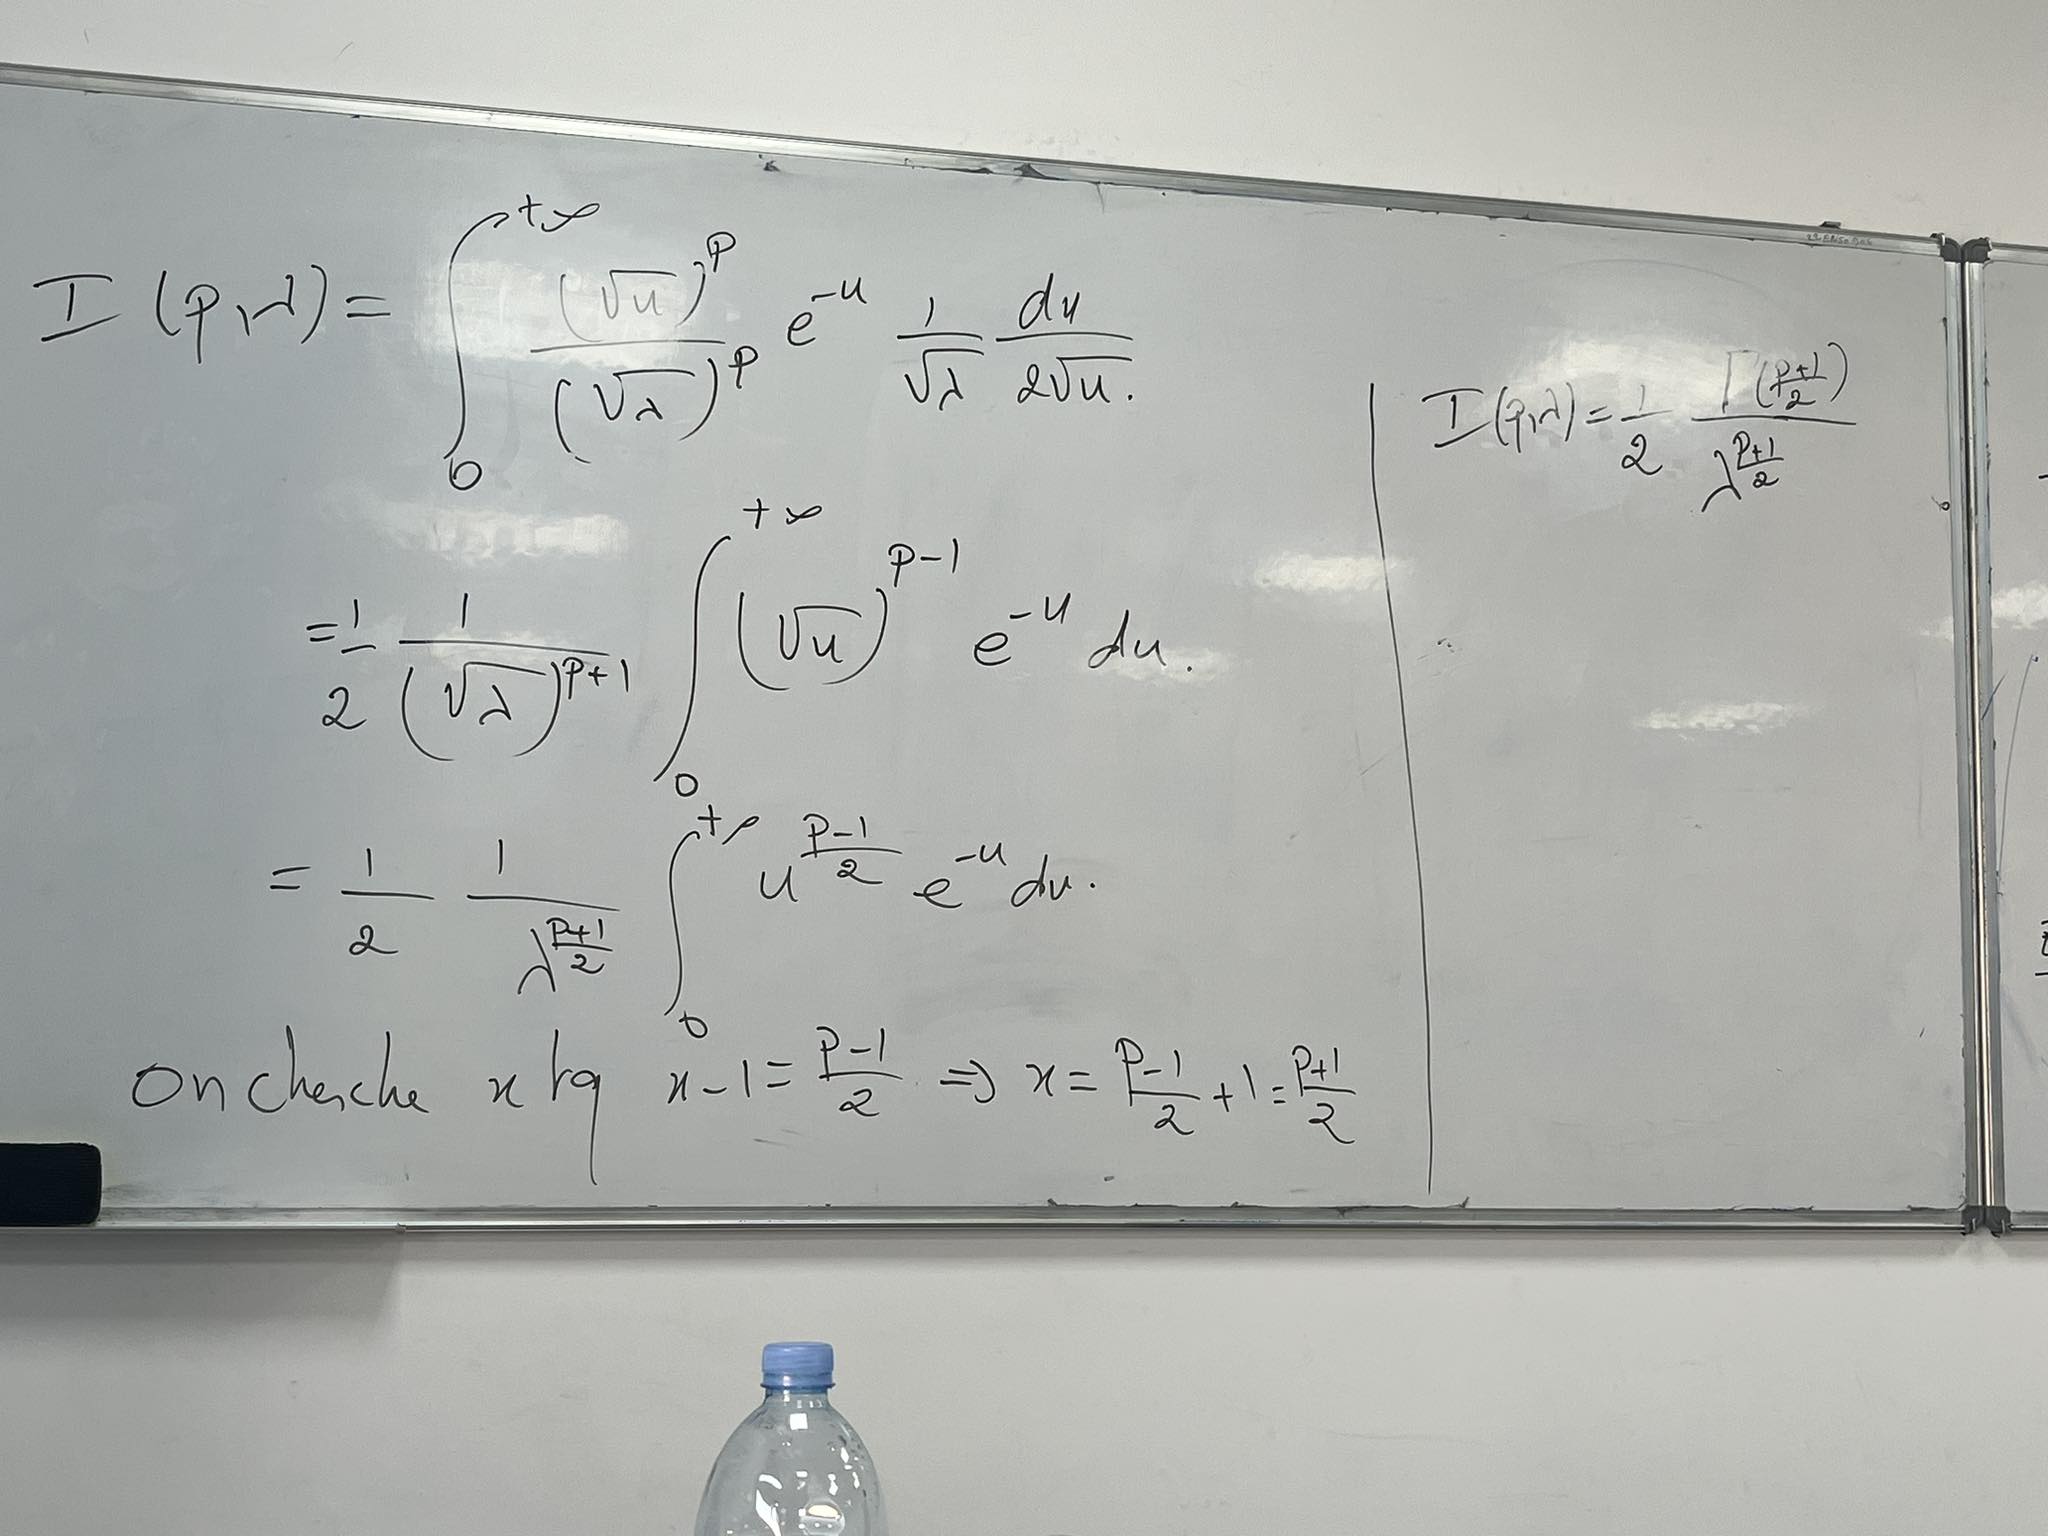 I(p,λ) = ∫₀^{+∞} (√u)^p / (√λ)^p e^{-u} 1/√λ du/2√u.
= 1/2 1/(√λ)^{p+1} ∫₀^{+∞} (√u)^{p-1} e^{-u} du.
= 1/2 1/λ^{(p+1)/2} ∫₀^{+∞} u^{(p-1)/2} e^{-u} du.
On cherche x tq x-1 = (p-1)/2 ⇒ x = (p-1)/2 + 1 = (p+1)/2
I(p,λ) = 1/2 Γ((p+1)/2) / λ^{(p+1)/2}